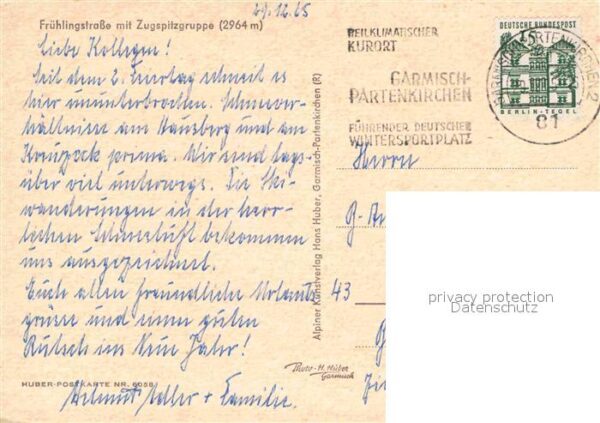 29.12.65
Frühlingstraße mit Zugspitzgruppe (2964 m)
Liebe Kollegen!
Seit dem 2. Feiertag schneit es
hier ununterbrochen. Schneever-
hältnisse am Hausberg und am
Kreuzeck prima. Wir sind tags-
über viel unterwegs. Die Ski-
wanderungen in der herr-
lichen Schneeluft bekommen
uns ausgezeichnet.
Euch allen freundliche Urlaubs-
grüsse und einen guten
Rutsch ins Neue Jahr!
Helmut + Familie.
HUBER-POSTKARTE NR. 6058
Alpiner Kunstverlag Hans Huber, Garmisch-Partenkirchen (R)
HEILKLIMATISCHER
KURORT
GARMISCH-
PARTENKIRCHEN
FÜHRENDER DEUTSCHER
WINTERSPORTPLATZ
DEUTSCHE BUNDESPOST
BERLIN-TEGEL
GARMISCH-PARTENKIRCHEN 2
81
Herrn
43
Photo-H. Huber
Garmisch
privacy protection
Datenschutz